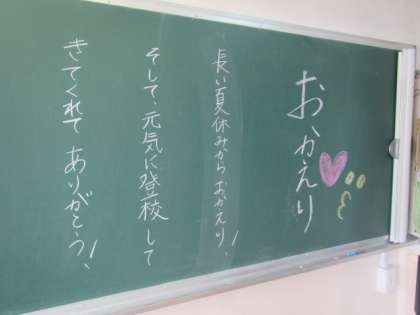 おかえり
長い夏休みからおかえり!
そして、元気に登校して
きてくれてありがとう!